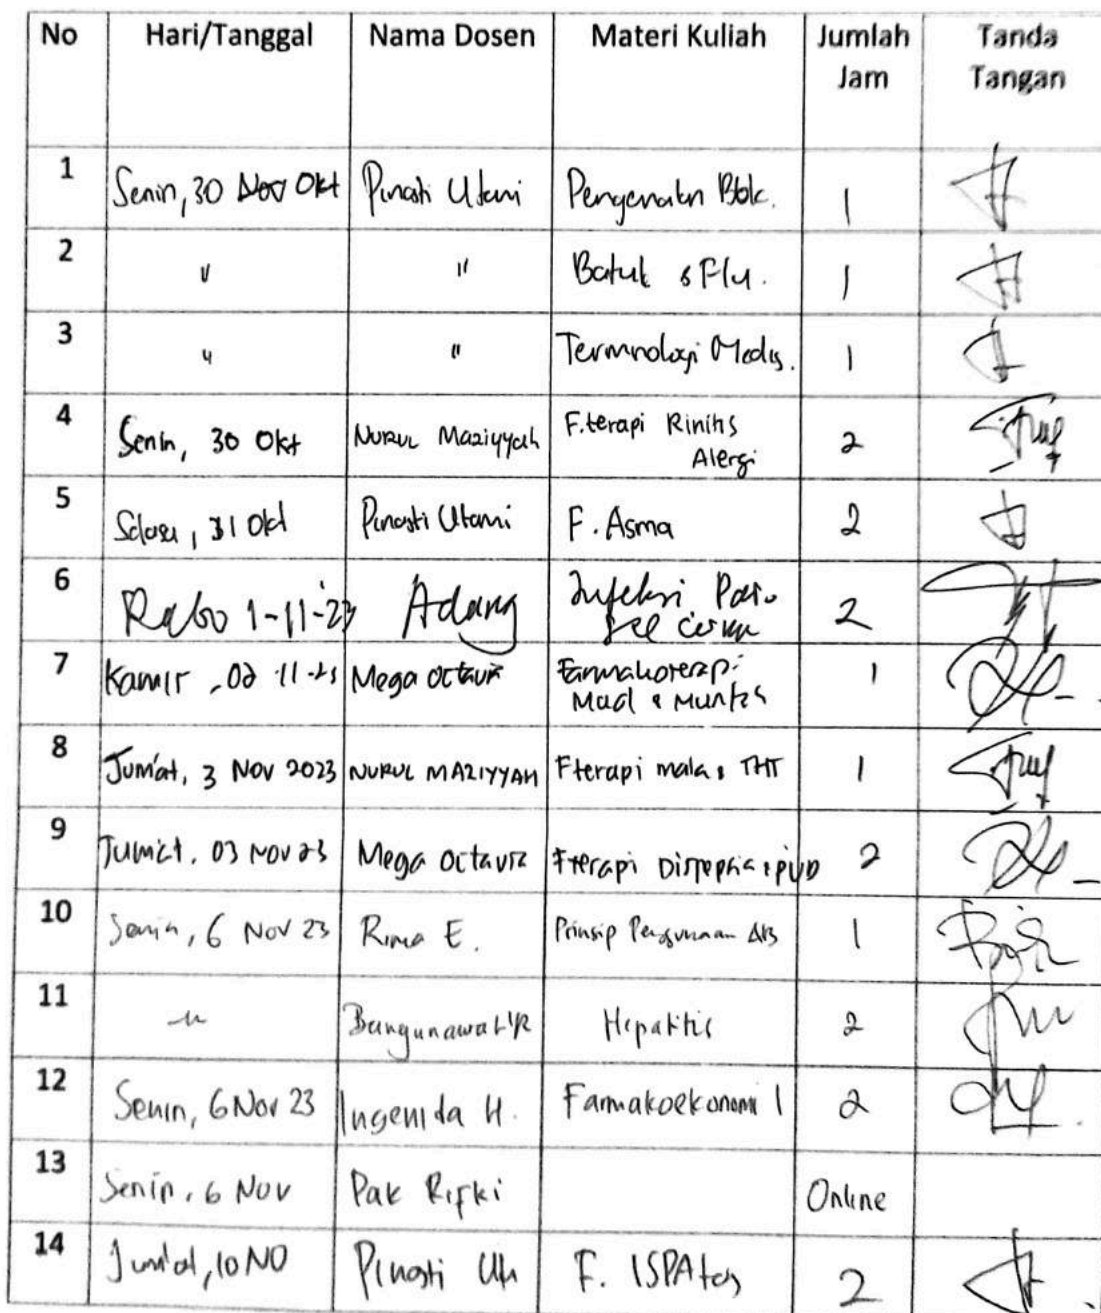 No Hari/Tanggal Nama Dosen Materi Kuliah Jumlah Jam Tanda Tangan
1 Senin, 30 Nov Okt Pinasti Utami Pengenalan Blok. 1
2 " " Batuk & Flu. 1
3 " " Terminologi Medis. 1
4 Senin, 30 Okt NURUL Maziyyah F.terapi Rinitis Alergi 2
5 Selasa, 31 Okt Pinasti Utami F. Asma 2
6 Rabo 1-11-23 Adang Infeksi 2
7 Kamis, 02-11-23 Mega Octavia Farmakoterapi Mual & Muntah 1
8 Jum'at, 3 Nov 2023 NURUL MAZIYYAH Fterapi mata & THT 1
9 Jumat, 03 Nov 23 Mega Octavia Fterapi Dispepsia & PUD 2
10 Senin, 6 Nov 23 Rima E. Prinsip Penggunaan AB 1
11 " Bangunawati R Hepatitis 2
12 Senin, 6 Nov 23 Ingenida H. Farmakoekonomi 1 2
13 Senin, 6 Nov Pak Rifki Online
14 Jum'at, 10 NO Pinasti Ut F. ISPA 2